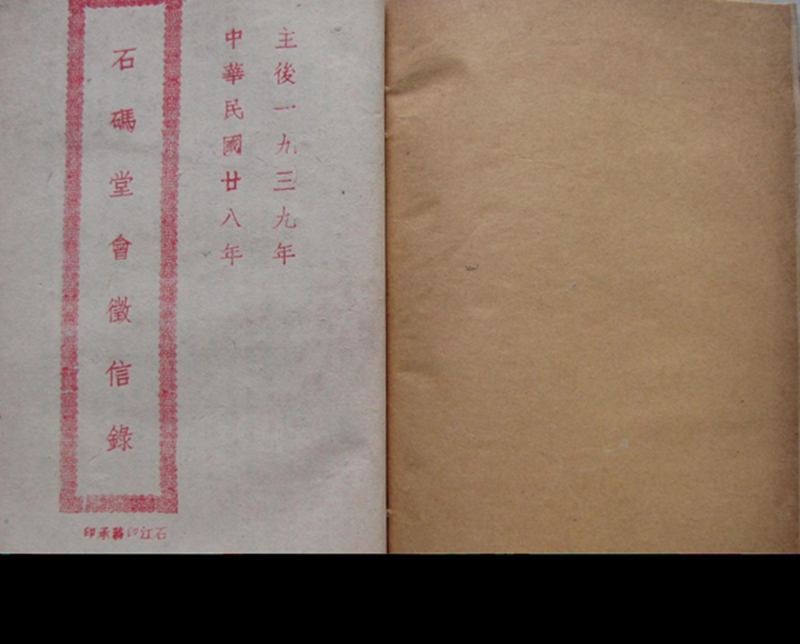 主後一九三九年
中華民國廿八年
石碼堂會徵信錄
石江印務承印